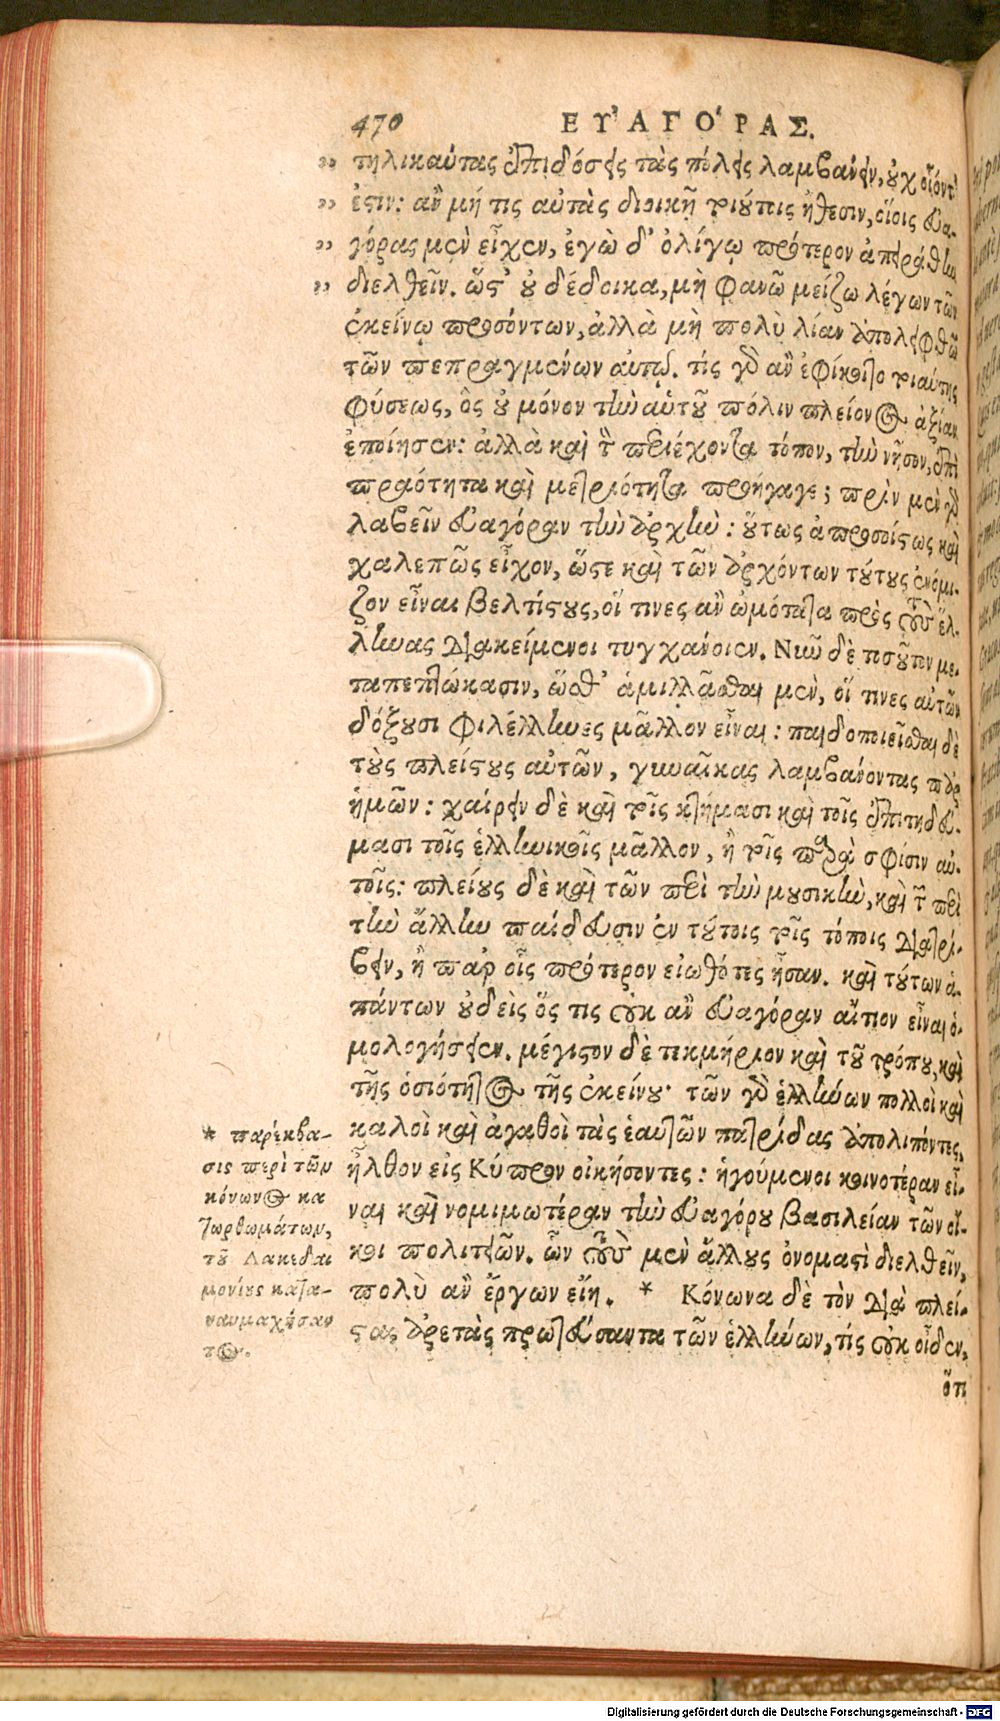 470 ΕΥ̓ΑΓΟ΄ΡΑΣ.
τηλικαύτας ἐπιδόσεις τὰς πόλεις λαμβάνειν, οὐχ οἷόντ'
ἐστιν: ἂν μή τις αὐτὰς διοικῇ τοιούτοις ἤθεσιν, οἵοις Εὐα-
γόρας μὲν εἶχεν, ἐγὼ δ' ὀλίγῳ πρότερον ἐπειράθην
διελθεῖν. ὥστ' οὐ δέδοικα, μὴ φανῶ μείζω λέγων τῶν
ἐκείνῳ προσόντων, ἀλλὰ μὴ πολὺ λίαν ἀπολειφθῶ
τῶν πεπραγμένων αὐτῷ. τίς γὸ ἂν ἐφίκοιτο τοιαύτης
φύσεως, ὃς οὐ μόνον τὴν αὑτοῦ πόλιν πλείονος ἀξίαν
ἐποίησεν: ἀλλὰ καὶ τὸν περιέχοντα τόπον, τὴν νῆσον, ἐπὶ
πραότητα καὶ μετριότητα προήγαγε; πρὶν μὲν γὸ
λαβεῖν Εὐαγόραν τὴν ἀρχὴν: οὕτως ἀπροσοίστως καὶ
χαλεπῶς εἶχον, ὥστε καὶ τῶν ἀρχόντων τούτους ἐνόμι-
ζον εἶναι βελτίστους, οἵ τινες ἂν ὠμότατα πρὸς τοὺς ἕλ-
ληνας διακείμενοι τυγχάνοιεν. Νῦν δὲ τοσοῦτον με-
ταπεπτώκασιν, ὥσθ' ἁμιλλᾶσθαι μὲν, οἵ τινες αὐτῶν
δόξουσι φιλέλληνες μᾶλλον εἶναι: παιδοποιεῖσθαι δὲ
τοὺς πλείστους αὐτῶν, γυναῖκας λαμβάνοντας παρ
ἡμῶν: χαίρειν δὲ καὶ τοῖς κτήμασι καὶ τοῖς ἐπιτηδεύ-
μασι τοῖς ἑλληνικοῖς μᾶλλον, ἢ τοῖς παρὰ σφίσιν αὐ-
τοῖς: πλείους δὲ καὶ τῶν περὶ τὴν μουσικὴν, καὶ τῶν περὶ
τὴν ἄλλην παίδευσιν ἐν τούτοις τοῖς τόποις διατρί-
βειν, ἢ παρ οἷς πρότερον εἰωθότες ἦσαν. καὶ τούτων ἁ-
πάντων οὐδεὶς ὅς τις οὐκ ἂν Εὐαγόραν αἴτιον εἶναι ὁ-
μολογήσειεν. μέγιστον δὲ τεκμήριον καὶ τοῦ τρόπου, καὶ
τῆς ὁσιότητος τῆς ἐκείνου· τῶν γὸ ἑλλήνων πολλοὶ καὶ
καλοὶ καὶ ἀγαθοὶ τὰς ἑαυτῶν πατρίδας ἀπολιπόντες,
ἦλθον εἰς Κύπρον οἰκήσοντες: ἡγούμενοι κοινοτέραν εἶ-
ναι καὶ νομιμωτέραν τὴν Εὐαγόρου βασιλείαν τῶν οἴ-
κοι πολιτειῶν. ὧν τοὺς μὲν ἄλλους ὀνομαστὶ διελθεῖν,
πολὺ ἂν ἔργων εἴη. * Κόνωνα δὲ τὸν διὰ πλεί-
στας ἀρετὰς πρωτεύσαντα τῶν ἑλλήνων, τίς οὐκ οἶδεν,
ὅτι
* παρέκβα-
σις περὶ τῶν
κόνωνος κα
τωρθωμάτων,
τοῦ Λακεδαι
μονίους κατα-
ναυμαχήσαν
τος.
Digitalisierung gefördert durch die Deutsche Forschungsgemeinschaft - DFG